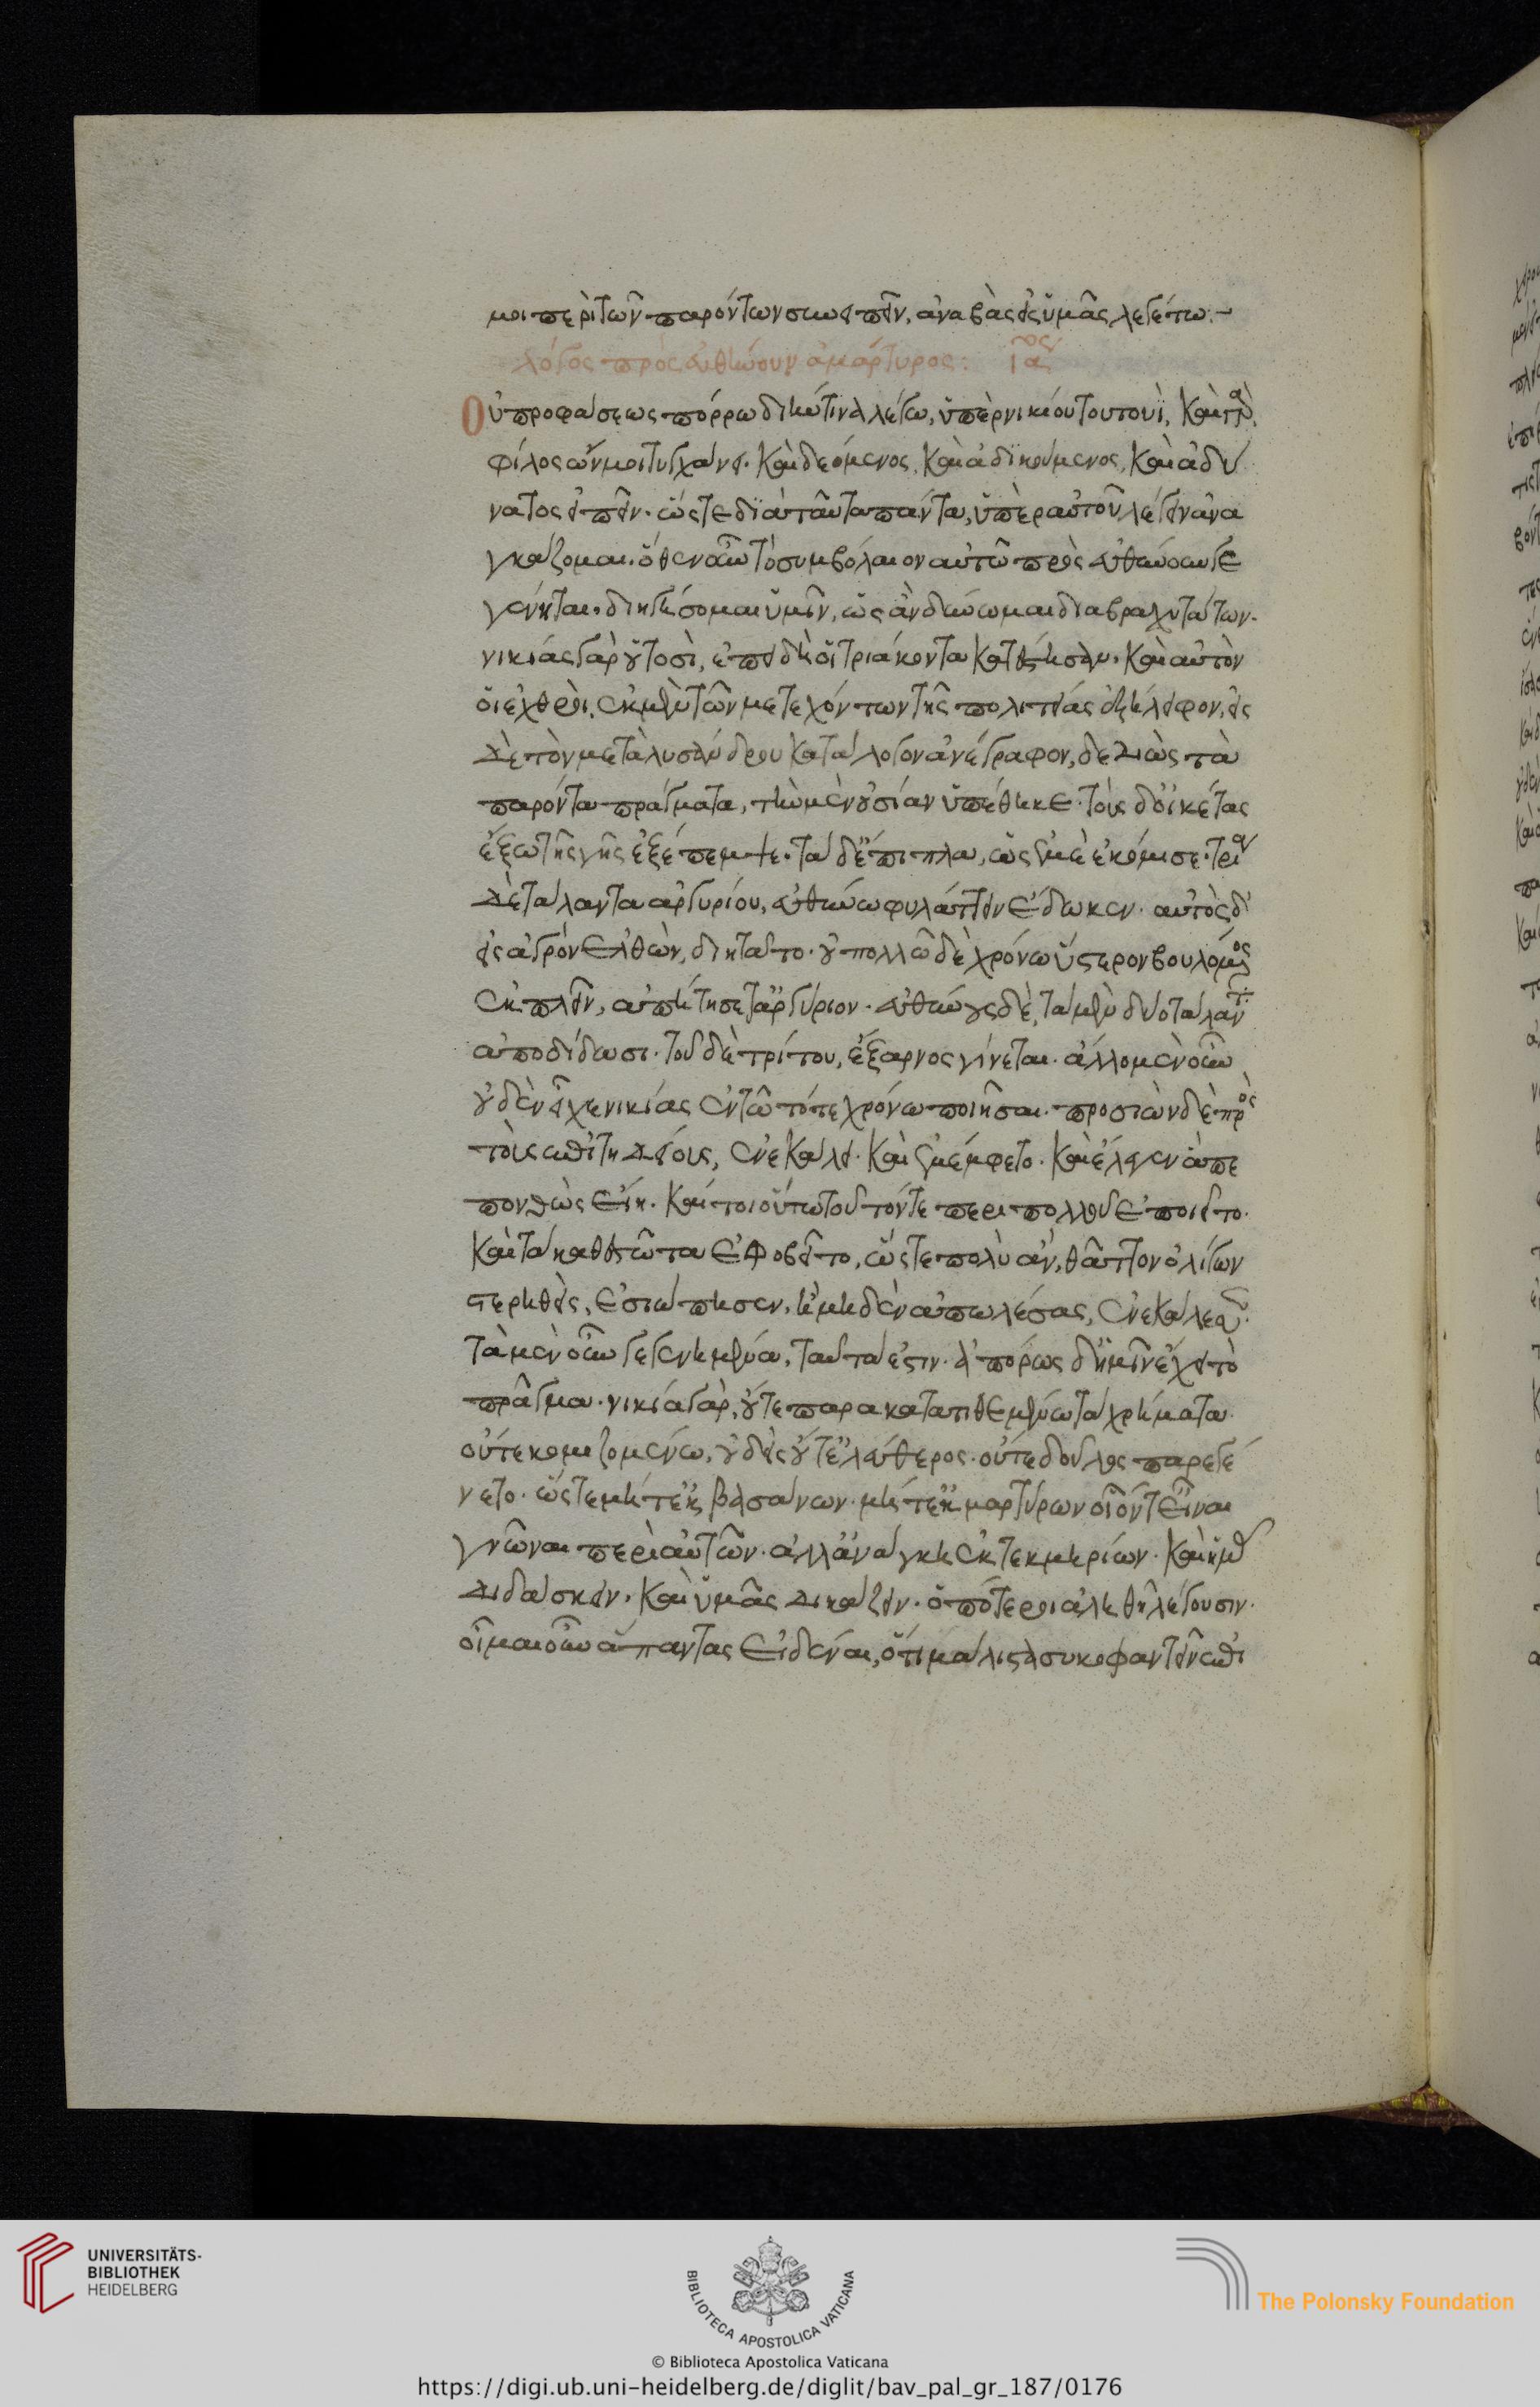 μοι περὶ τῶν παρόντων συνειπεῖν, ἀναβὰς εἰς ὑμᾶς λεγέτω:~
λόγος πρὸς εὐθύνουν ἀμάρτυρος: ιαος
Οὐ προφάσεως πορρωδικήτινα λέγω, ὑπὲρ νικίου τουτουῒ, καὶ γὰρ
φίλος ὤν μοι τυγχάνει. καὶ δεόμενος, καὶ ἀδικούμενος, καὶ ἀδύ
νατος εἰπεῖν. ὥστε διὰ ταῦτα πάντα, ὑπὲρ αὐτοῦ λέγειν ἀνα
γκάζομαι. ὅθεν οὖν τὸ συμβόλαιον αὐτῶ πρὸς εὐθύνουν γε
γένηται. διηγήσομαι ὑμῖν, ὡς ἂν δύνωμαι διαβραχυτάτων.
νικίας γὰρ οὑτοσὶ, ἐπειδὴ οἱ τριάκοντα κατέστησαν. καὶ αὐτὸν
οἱ ἐχθροὶ, ἐκ μὲν τῶν μετεχόντων τῆς πολιτείας ἐξήλειφον, εἰς
δὲ τὸν μετὰ λυσάνδρου κατάλογον ἀνέγραφον, δεδιὼς τὰ
παρόντα πράγματα, τὴν μὲν οὐσίαν ὑπέθηκε. τοὺς δ' οἰκέτας
ἔξω τῆς γῆς ἐξέπεμψε. τὰ δ' ἔπιπλα, ὡς ἐμὲ ἐκόμισε. τρία
δὲ τάλαντα ἀργυρίου, εὐθύνω φυλάττειν ἔδωκεν. αὐτὸς δ'
εἰς ἀγρὸν ἐλθὼν, διητᾶτο. οὐ πολλῶ δὲ χρόνω ὕστερον βουλόμενος
ἐκπλεῖν, ἀπήτησε τἀργύριον. εὐθύνους δὲ, τὰ μὲν δύο τάλαντα
ἀποδίδωσι. τοῦ δὲ τρίτου, ἔξαρνος γίνεται. ἄλλο μὲν οὖν
οὐδὲν εἶχε νικίας ἐν τῶ τότε χρόνω ποιῆσαι. προσιὼν δὲ πρὸς
τοὺς ἐπιτηδείους, ἐνεκάλει. καὶ ἐμέμφετο. καὶ ἔλεγεν ἃ πε
πονθὼς εἴη. καί τοι οὕτω τοῦτόν τε περι πολλοῦ ἐποιεῖτο.
καὶ τὰ καθεστῶτα ἐφοβεῖτο, ὥστε πολὺ ἂν, θᾶττον ὀλίγων
στερηθεὶς, ἐσιώπησεν, ἢ μηδὲν ἀπωλέσας, ἐνεκάλεσεν.
τὰ μὲν οὖν γεγενημένα, ταῦτά ἐστιν. ἀπόρως δ' ἡμῖν ἔχει τὸ
πρᾶγμα. νικία γὰρ, οὔτε παρακατατιθεμένω τὰ χρήματα.
οὔτε κομιζομένω, οὐδεὶς οὔτ' ἐλεύθερος. οὔτε δοῦλος παρεγέ
νετο. ὥστε μήτ' ἐκ βασάνων. μήτ' ἐκ μαρτύρων οἷόν τ' εἶναι
γνῶναι περὶ αὐτῶν. ἀλλ' ἀνάγκη ἐκ τεκμηρίων. καὶ ἡμᾶς
διδάσκειν. καὶ ὑμᾶς δικάζειν. ὁπότεροι ἀληθῆ λέγουσιν.
οἶμαι οὖν ἅπαντας εἰδέναι, ὅτι μάλιστα συκοφαντεῖν ἐπι
UNIVERSITÄTS-
BIBLIOTHEK
HEIDELBERG
BIBLIOTECA APOSTOLICA VATICANA
The Polonsky Foundation
© Biblioteca Apostolica Vaticana
https://digi.ub.uni-heidelberg.de/diglit/bav_pal_gr_187/0176